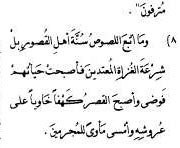 مُترفون" .
٨) وما اتبع اللصوص سُنَّةَ أهلِ القُصورِ بلْ
شِرْعَةَ الغُزاةِ المُعتدينَ فأصبحتْ حَياتُهم
فوضى وأصبح القصرُ كَهْفاً خاوياً على
عروشِهِ وأمسى مأوىً للمجرمينَ .